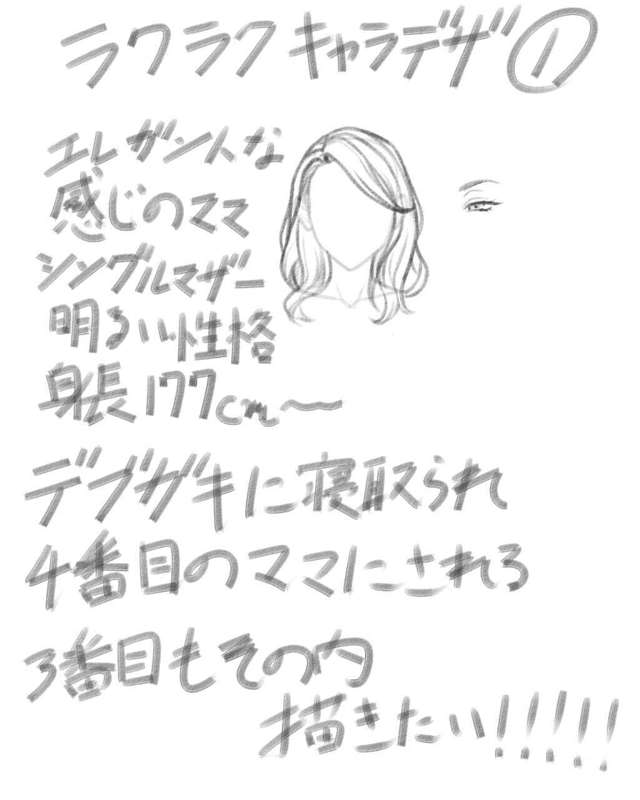 ラクラクキャラデザ①
エレガントな
感じのママ
シングルマザー
明るい性格
身長177cm〜
デブガキに寝取られ
4番目のママにされる
3番目もその内
描きたい!!!!!